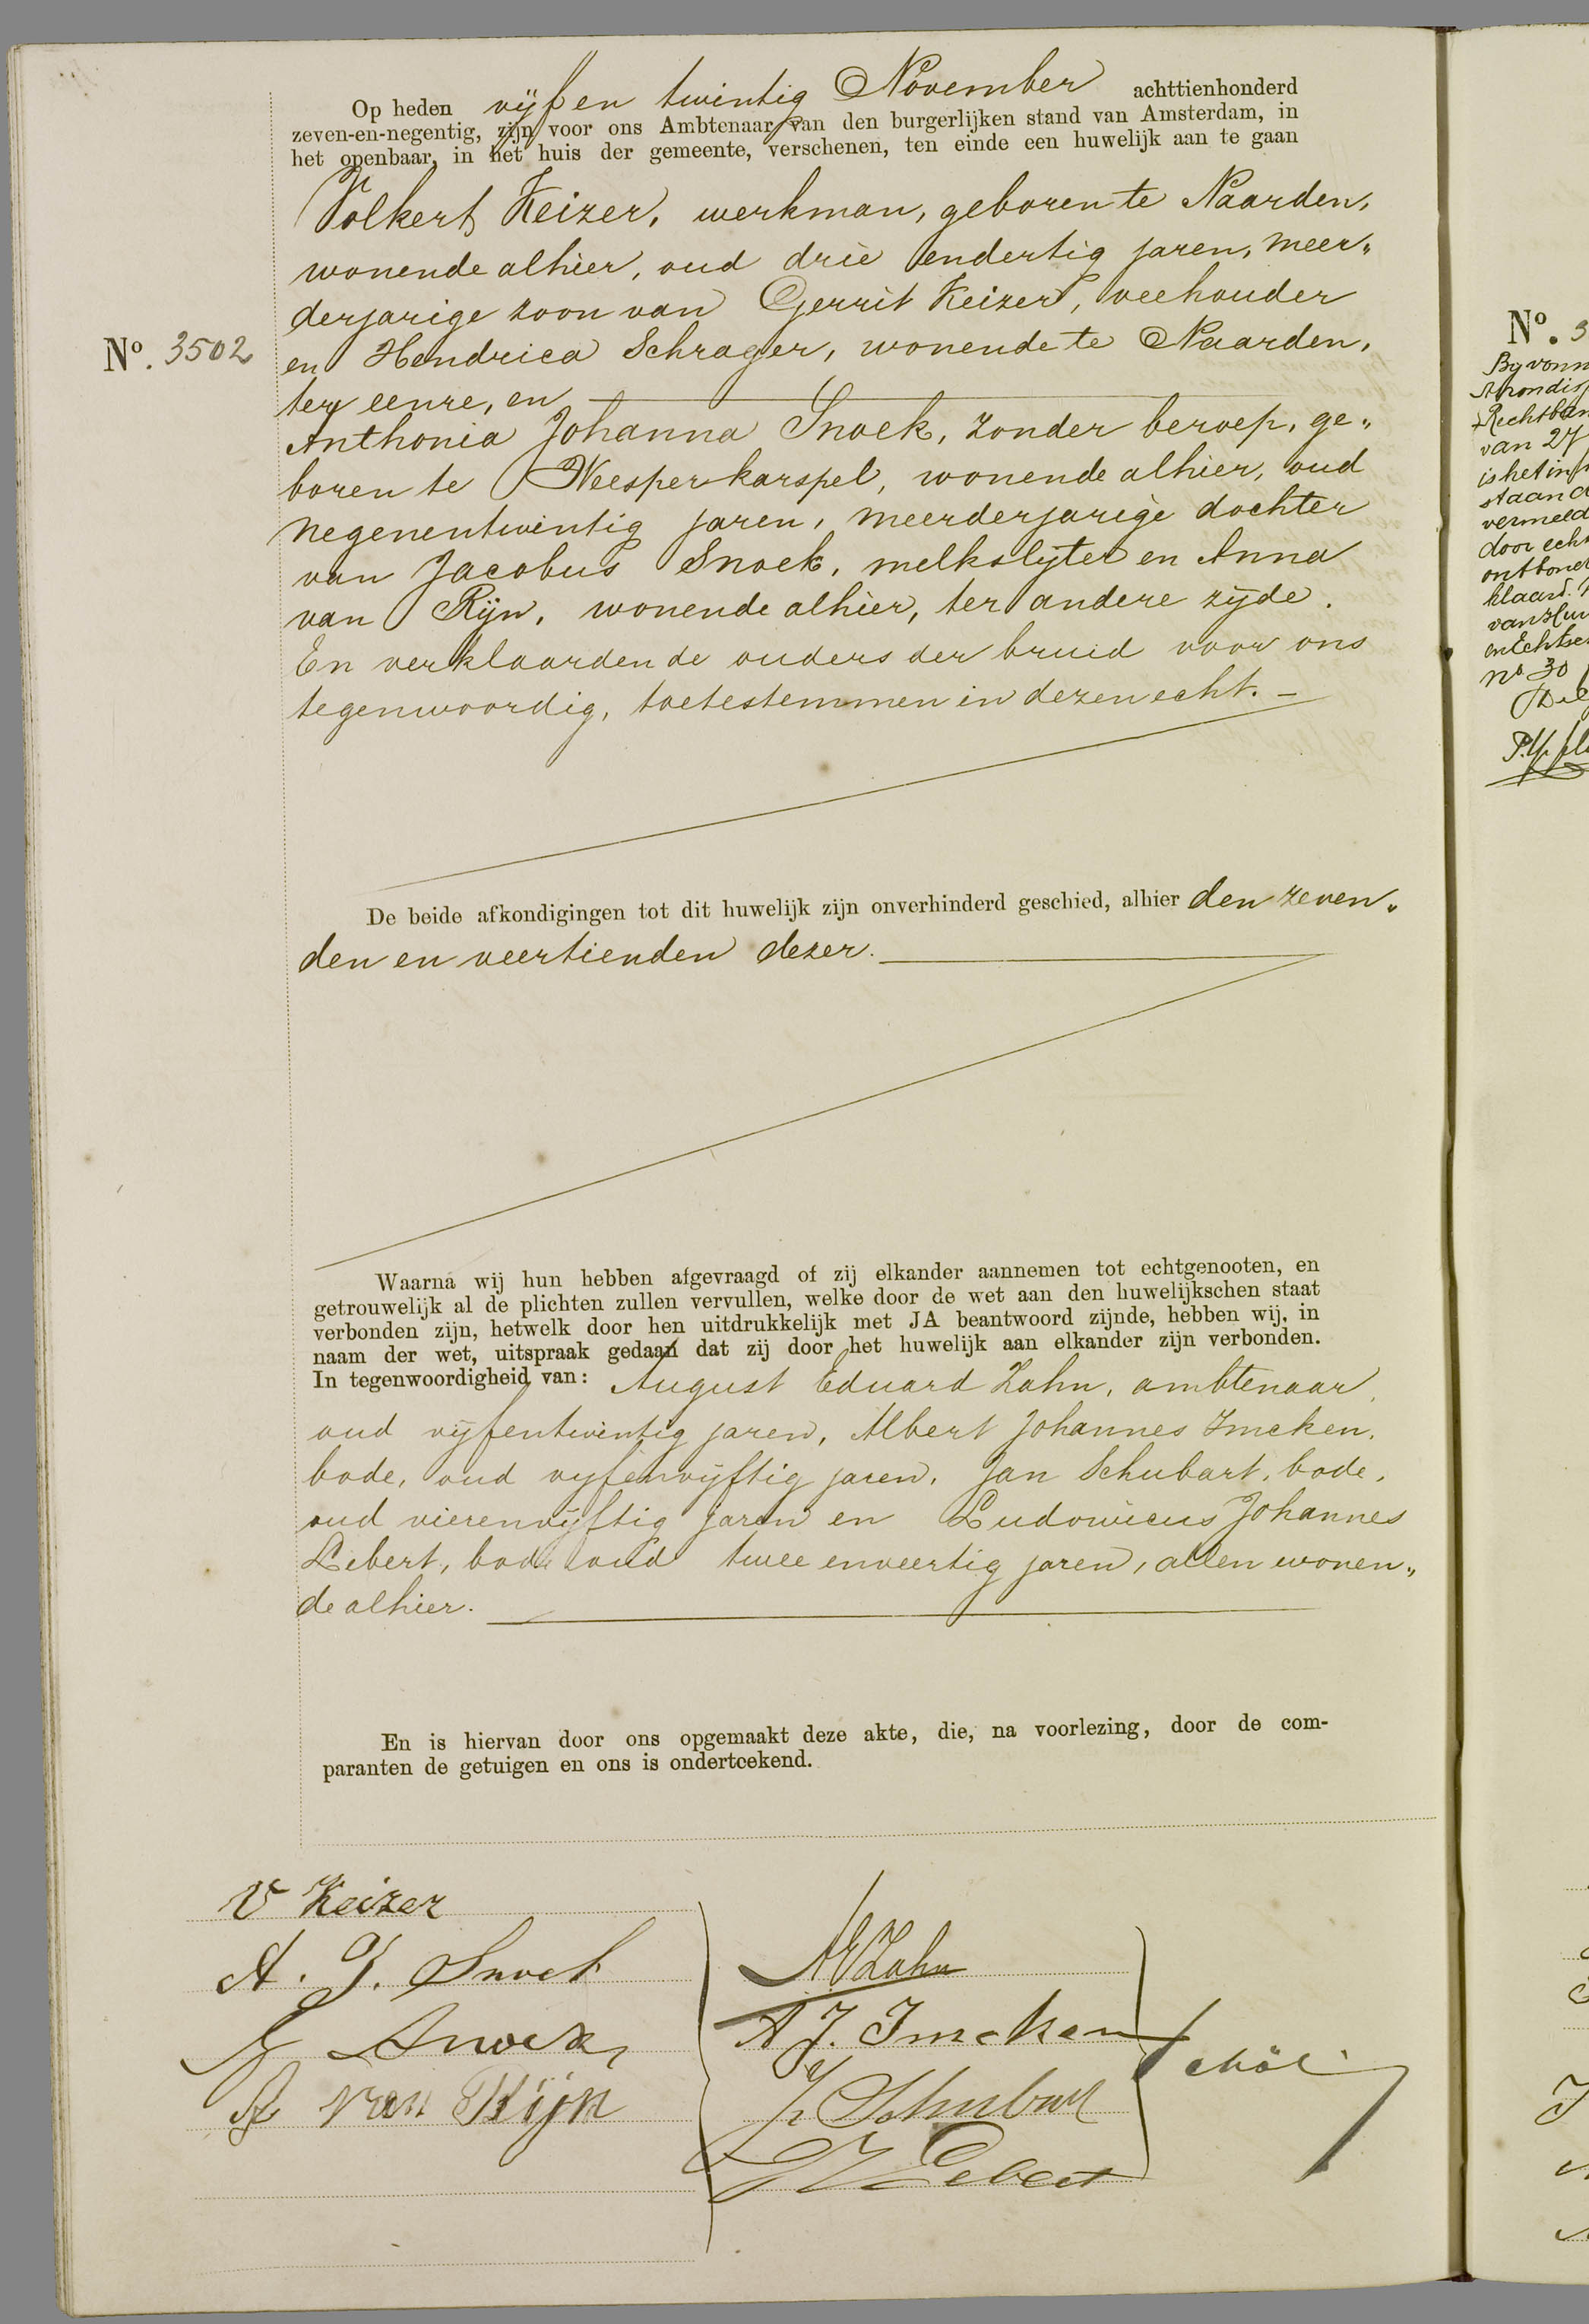 Op heden vijf en twintig November achttienhonderd
zeven-en-negentig, zijn voor ons Ambtenaar van den burgerlijken stand van Amsterdam, in
het openbaar, in het huis der gemeente, verschenen, ten einde een huwelijk aan te gaan
Volkert Keizer, werkman, geboren te Naarden,
wonende alhier, oud drie endertig jaren, meer„
derjarige zoon van Gerrit Keizer, veehouder
No. 3502
en Hendrica Schrager, wonende te Naarden,
ter eenre, en
Anthonia Johanna Snoek, zonder beroep, ge„
boren te Weesperkarspel, wonende alhier, oud
negenentwintig jaren, meerderjarige dochter
van Jacobus Snoek, melkslyter en Anna
van Rijn, wonende alhier, ter andere zijde.
En verklaarden de ouders der bruid voor ons
tegenwoordig, toetestemmen in dezen echt. –
De beide afkondigingen tot dit huwelijk zijn onverhinderd geschied, alhier den zeven„
den en veertienden dezer.
Waarna wij hun hebben afgevraagd of zij elkander aannemen tot echtgenooten, en
getrouwelijk al de plichten zullen vervullen, welke door de wet aan den huwelijkschen staat
verbonden zijn, hetwelk door hen uitdrukkelijk met JA beantwoord zijnde, hebben wij, in
naam der wet, uitspraak gedaan dat zij door het huwelijk aan elkander zijn verbonden.
In tegenwoordigheid van: August Eduard Zahn, ambtenaar,
oud vijfentwintig jaren, Albert Johannes Imeken,
bode, oud vyfenvijftig jaren, Jan Schubart, bode,
oud vierenvijftig jaren en Ludovicus Johannes
Lebert, bode oud twee enveertig jaren, allen wonen„
de alhier.
En is hiervan door ons opgemaakt deze akte, die, na voorlezing, door de com-
paranten de getuigen en ons is onderteekend.
V Keizer
A. J. Snoek
J Snoek
A van Rijn
AEZahn
A J. Imeken
J. Schubart
LJ Lebert
No. 3
By vonn
Arrondis
Rechtban
van 27
is het in
staand
vermeld
door echt
ontbon
klaard.
van
en Echtsc
no 30